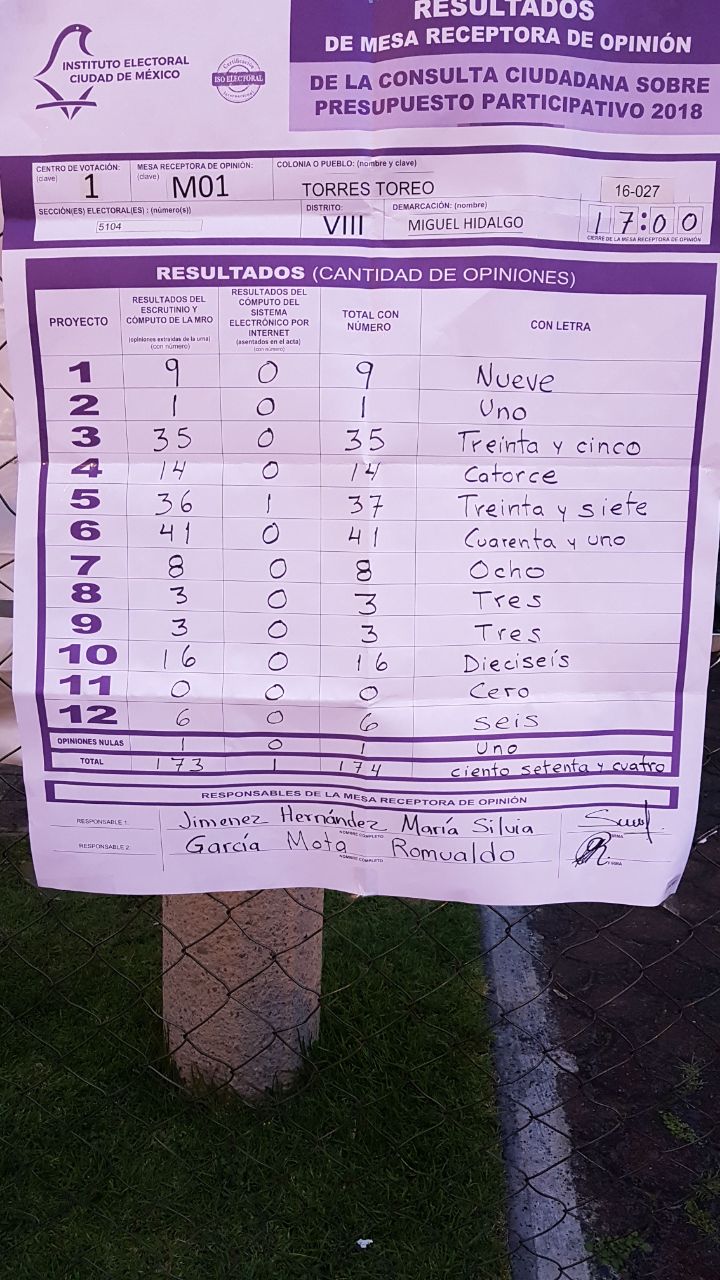 RESULTADOS
DE MESA RECEPTORA DE OPINIÓN
DE LA CONSULTA CIUDADANA SOBRE
PRESUPUESTO PARTICIPATIVO 2018
INSTITUTO ELECTORAL
CIUDAD DE MÉXICO
ISO ELECTORAL
CENTRO DE VOTACIÓN: (clave) 1
MESA RECEPTORA DE OPINIÓN: (clave) M01
COLONIA O PUEBLO: (nombre y clave)
TORRES TOREO 16-027
SECCIÓN(ES) ELECTORAL(ES) : (número(s)) 5104
DISTRITO: VIII
DEMARCACIÓN: (nombre) MIGUEL HIDALGO
17:00
CIERRE DE LA MESA RECEPTORA DE OPINIÓN
RESULTADOS (CANTIDAD DE OPINIONES)
PROYECTO
RESULTADOS DEL ESCRUTINIO Y CÓMPUTO DE LA MRO (opiniones extraídas de la urna) (con número)
RESULTADOS DEL CÓMPUTO DEL SISTEMA ELECTRÓNICO POR INTERNET (asentados en el acta) (con número)
TOTAL CON NÚMERO
CON LETRA
1 9 0 9 Nueve
2 1 0 1 Uno
3 35 0 35 Treinta y cinco
4 14 0 14 Catorce
5 36 1 37 Treinta y siete
6 41 0 41 Cuarenta y uno
7 8 0 8 Ocho
8 3 0 3 Tres
9 3 0 3 Tres
10 16 0 16 Dieciseís
11 0 0 0 Cero
12 6 0 6 seis
OPINIONES NULAS 1 0 1 Uno
TOTAL 173 1 174 ciento setenta y cuatro
RESPONSABLES DE LA MESA RECEPTORA DE OPINIÓN
RESPONSABLE 1: Jimenez Hernández María Silvia
NOMBRE COMPLETO FIRMA
RESPONSABLE 2: García Mota Romualdo
NOMBRE COMPLETO FIRMA